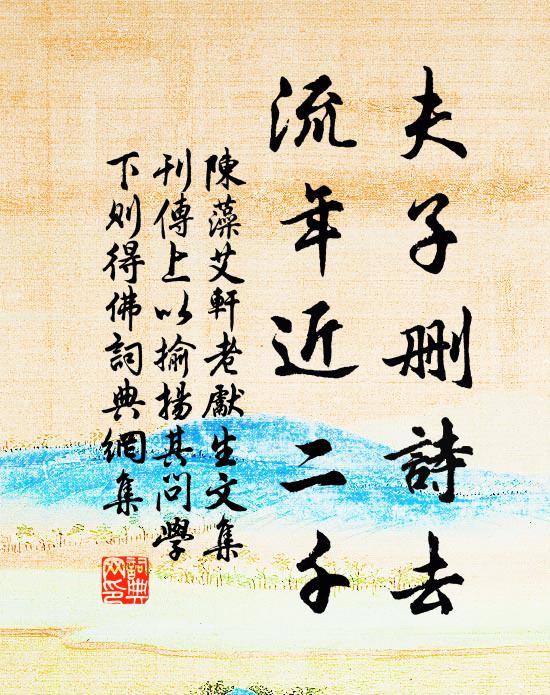 夫子删詩去
流年近二千
陳藻艾軒老獻生文集
刊傳上以揄揚其問學
下則得佛詞典網集
詞典網印